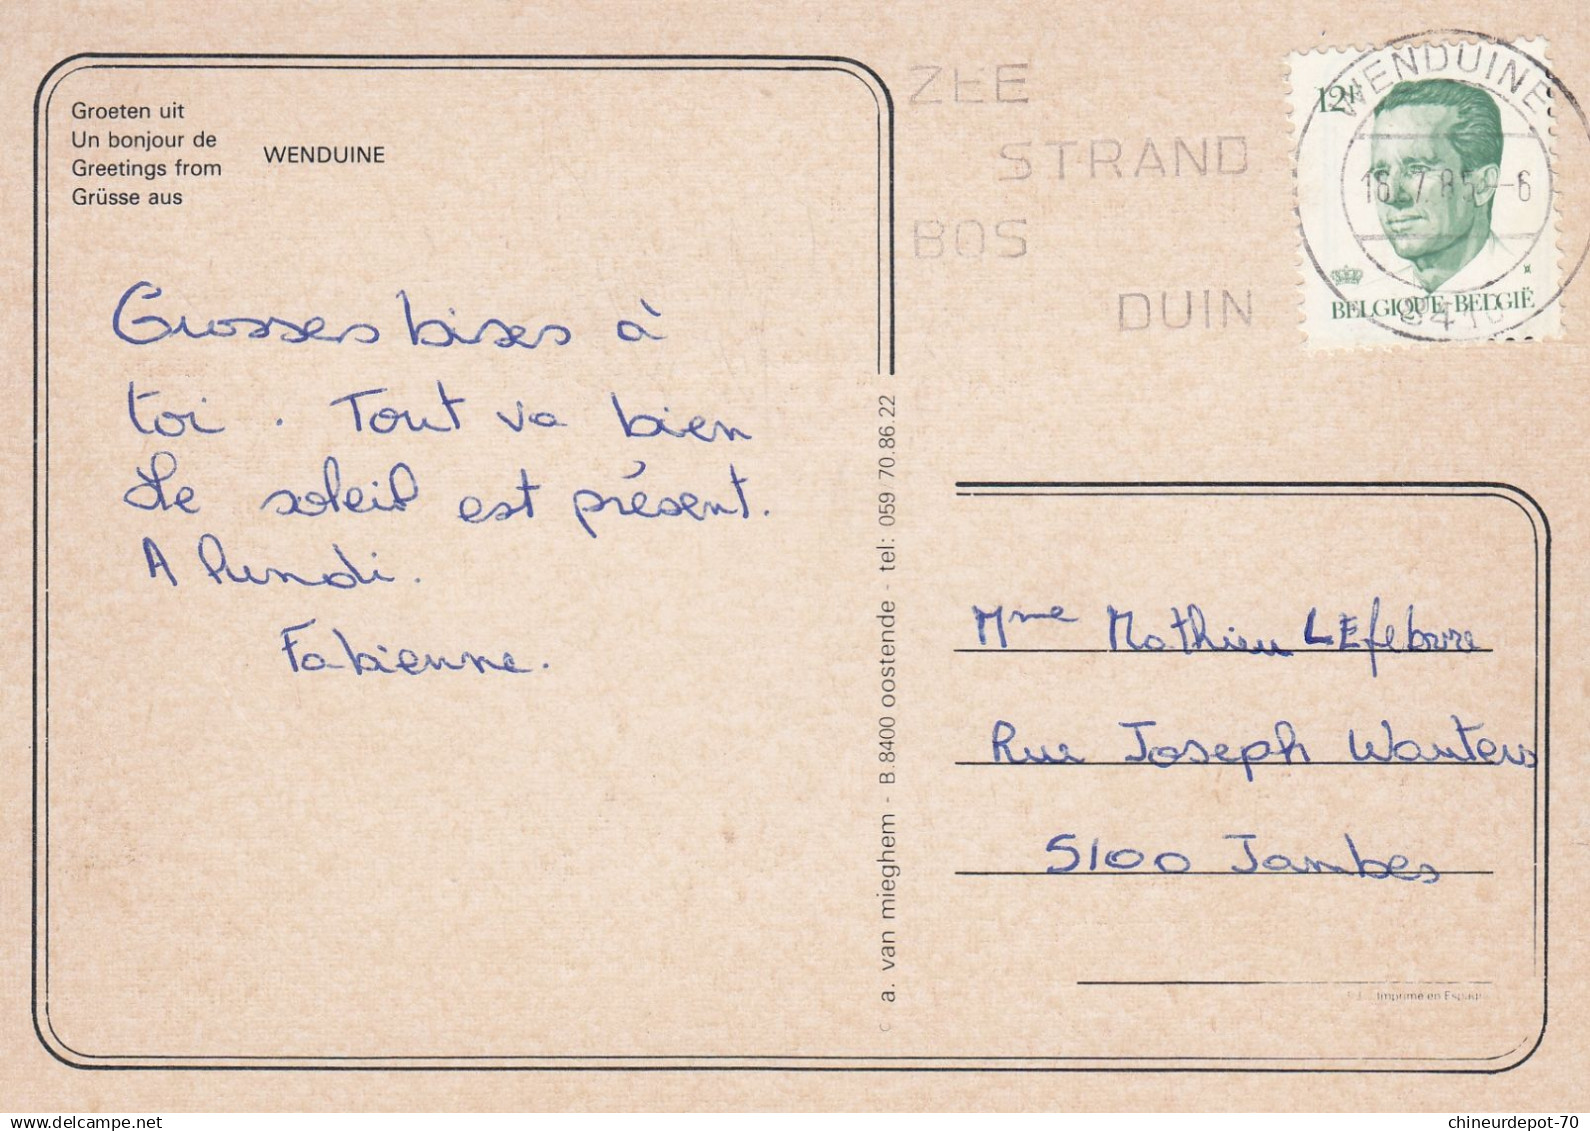 Groeten uit
Un bonjour de
Greetings from
Grüsse aus
WENDUINE
Grosses bises à
toi . Tout va bien
Le soleil est présent.
A lundi.
Fabienne.
c a. van mieghem - B.8400 oostende - tel: 059 70.86.22
ZEE
STRAND
BOS
DUIN
WENDUINE
12F
BELGIQUE-BELGIË
Mme Mathieu LEfebvre
Rue Joseph Wauters
5100 Jambes
Imprimé en Espagne
chineurdepot-70